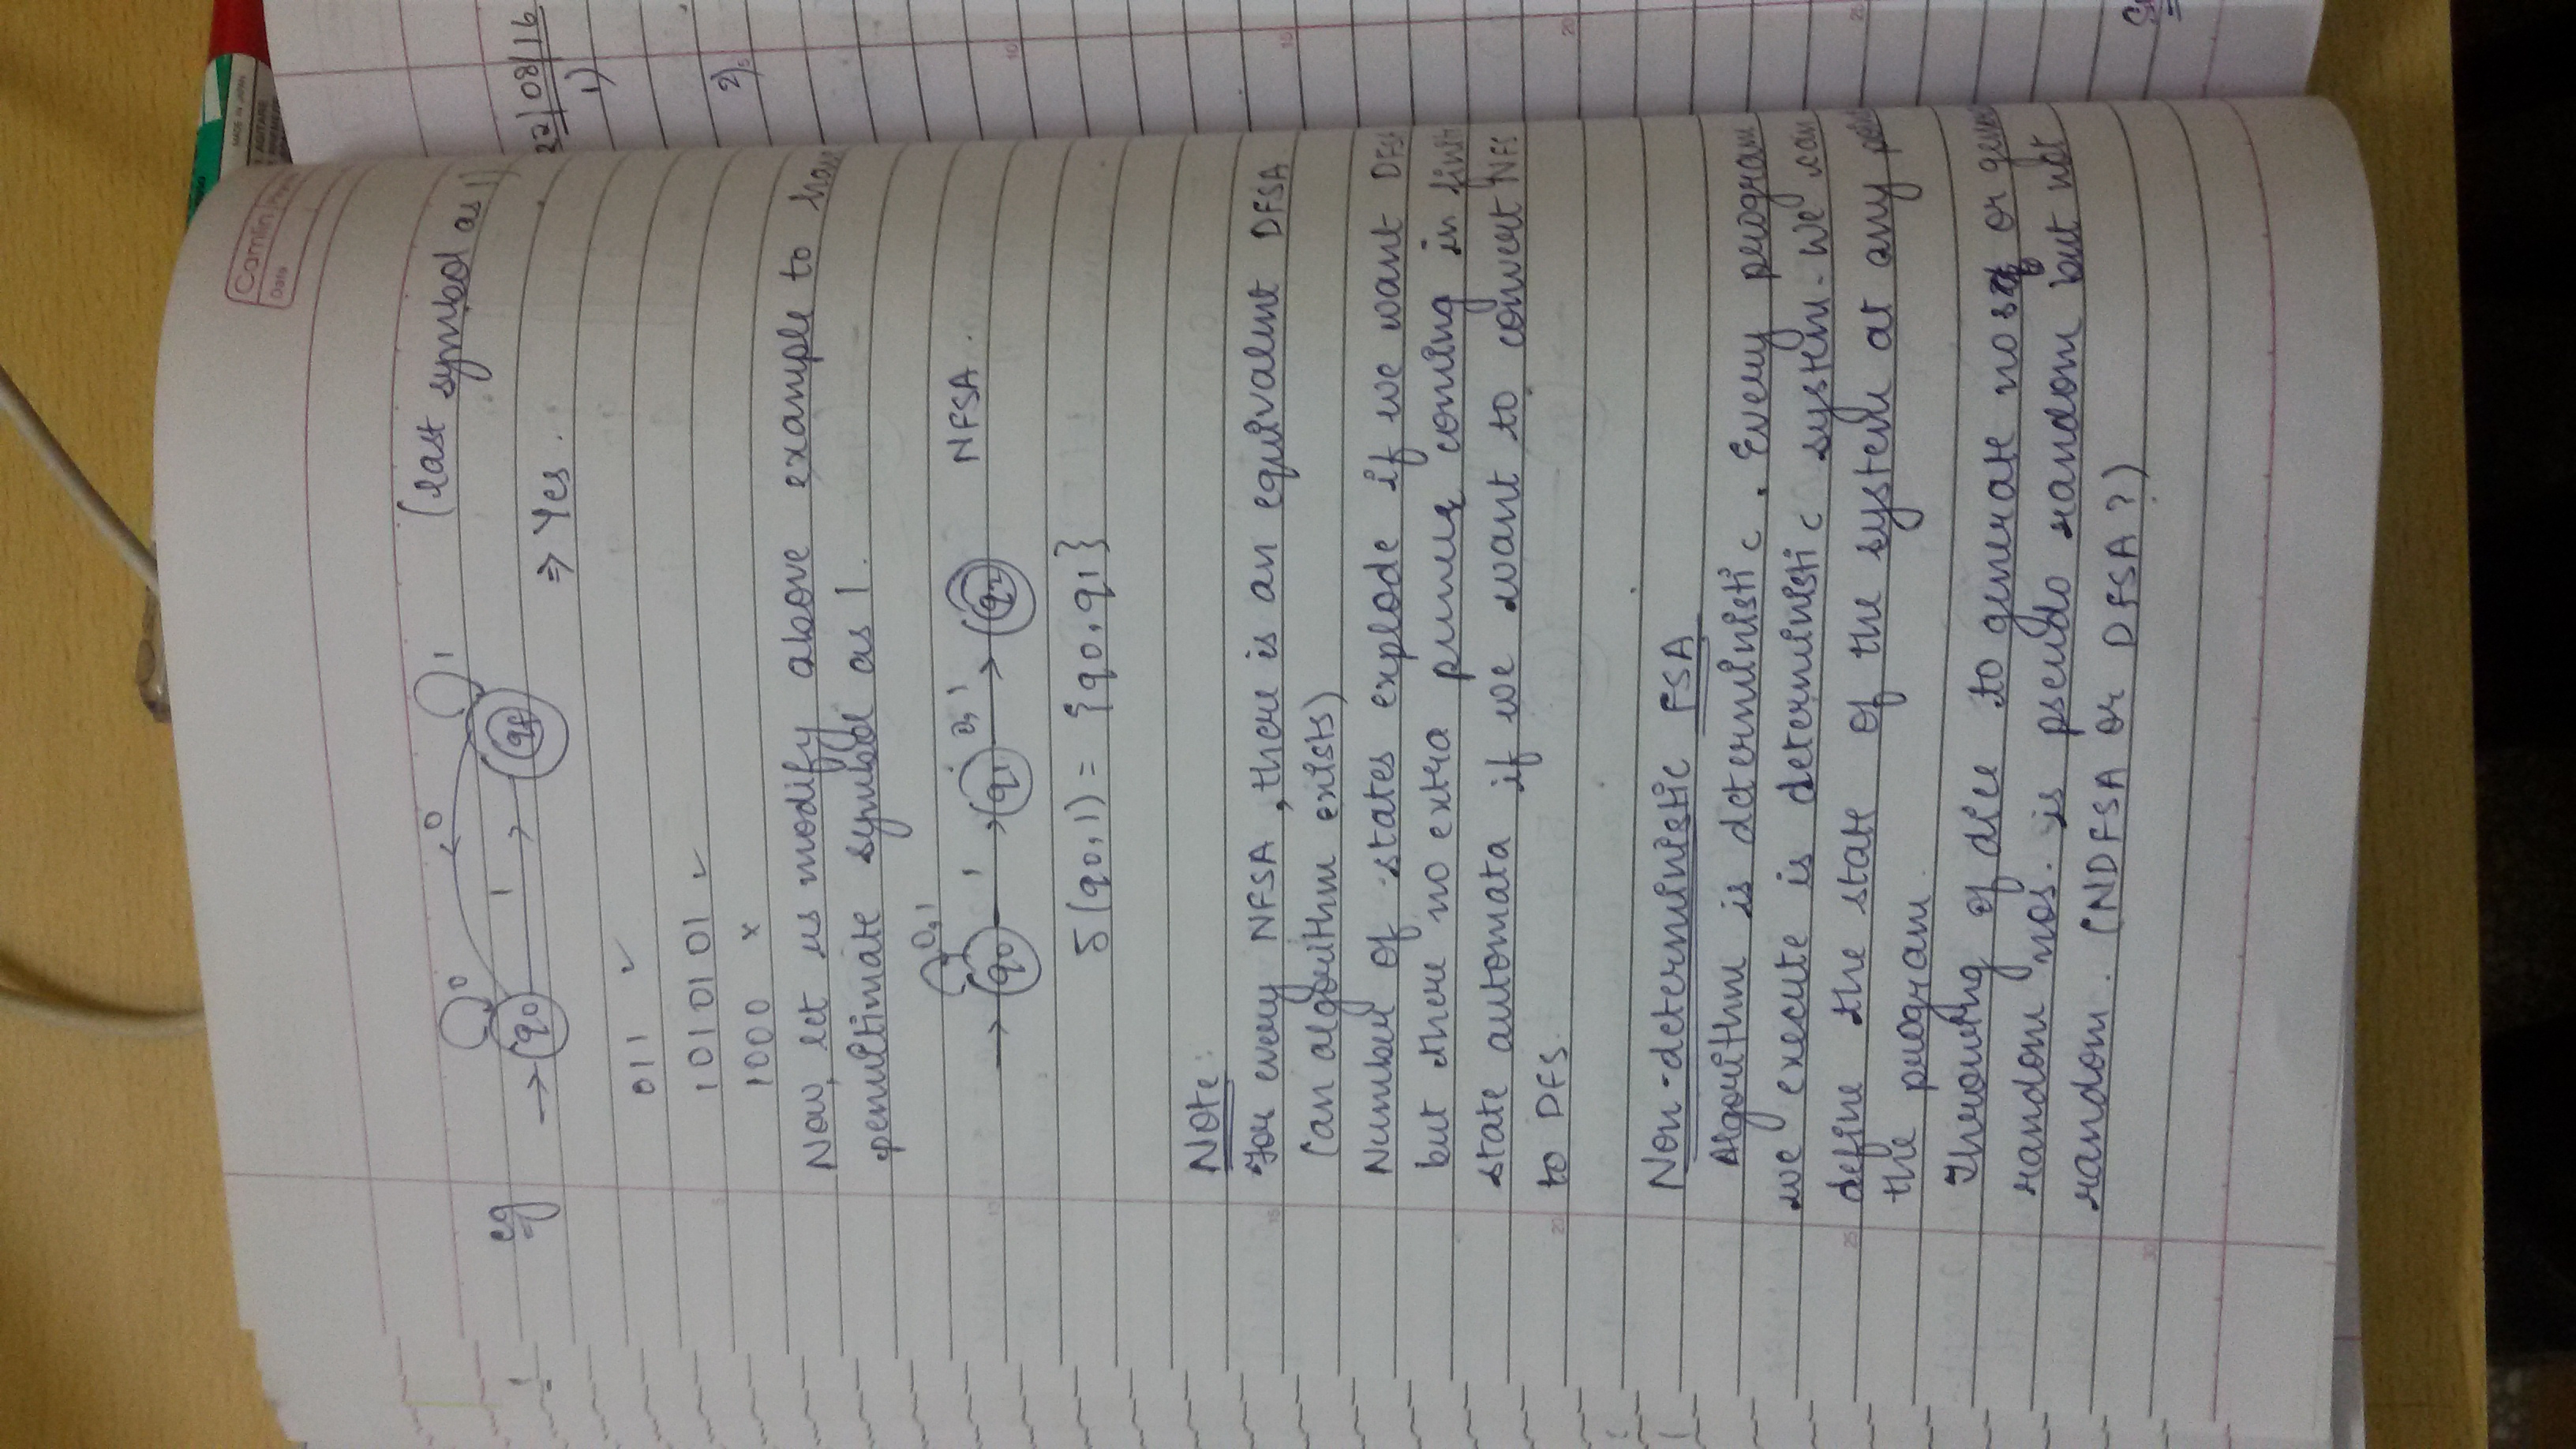 Camlin
Date
MADE IN JAPAN
AGITARE
eg
0
0
1
(last symbol as 1)
q0
1
qf
⇒ Yes.
22/08/16
1)
011 ✓
1010101 ✓
2)
1000 ×
Now, let us modify above example to
penultimate symbol as 1.
0,1
q0
1
q1
0,1
q2
NFSA.
δ(q0,1) = {q0,q1}
Note:
For every NFSA, there is an equivalent DFSA
(an algorithm exists)
Number of states explode if we want
but there no extra power coming in
state automata if we want to convert NFS
to DFS.
Non-deterministic FSA
Algorithm is deterministic. Every program
we execute is deterministic system. We can
define the state of the system at any
the program.
Throwing of dice to generate nos or
random nos. is pseudo random but not
random. (NDFSA or DFSA?)
5
10
15
20
25
30
10
15
20
25